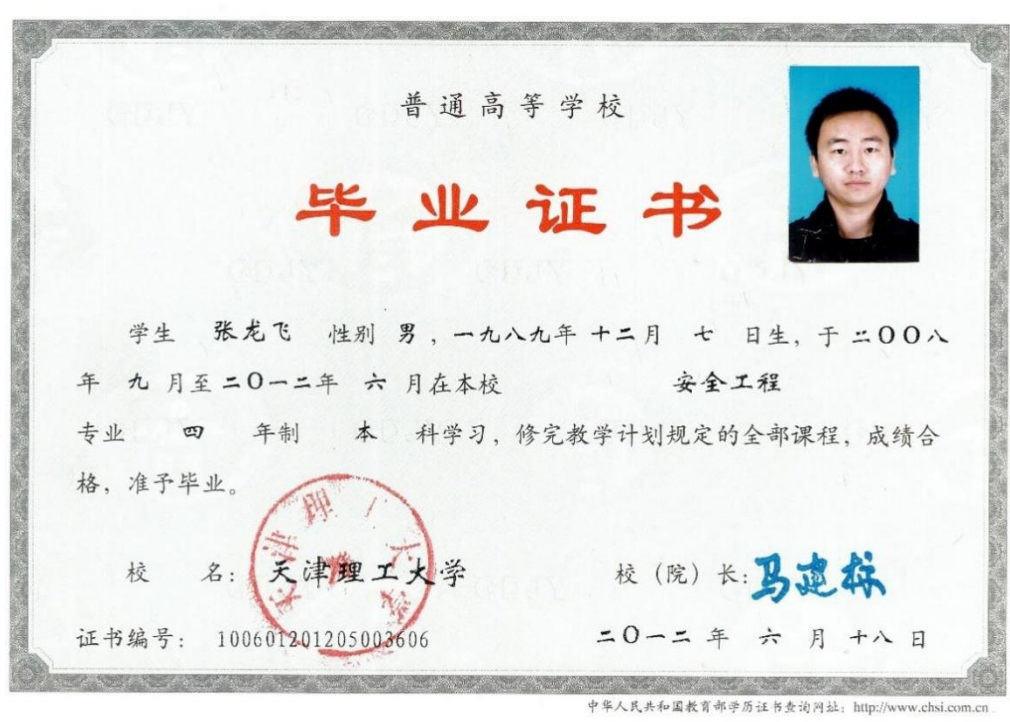 普通高等学校
毕业证书
学生 张龙飞 性别 男，一九八九年 十二月 七 日生，于 二〇〇八
年 九 月至 二〇一二年 六 月在本校 安全工程
专业 四 年制 本 科学习，修完教学计划规定的全部课程，成绩合
格，准予毕业。
天津理工大学
校 名： 天津理工大学 校（院）长：马建标
证书编号： 100601201205003606 二〇一二 年 六 月 十八 日
中华人民共和国教育部学历证书查询网址：http://www.chsi.com.cn